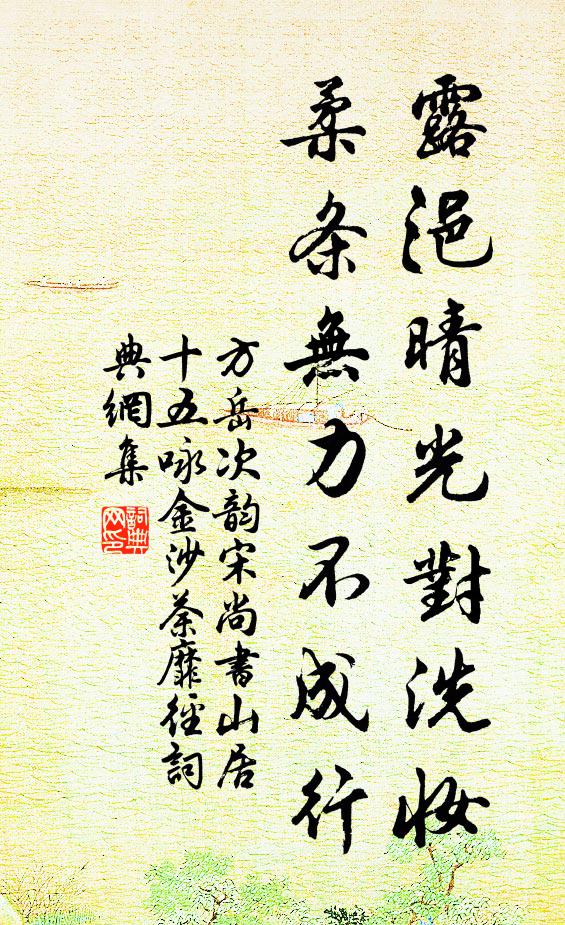 露浥晴光對洗妝
柔条無力不成行
方岳次韵宋尚書山居
十五咏金沙荼靡徑詞
典網集
詞典网印